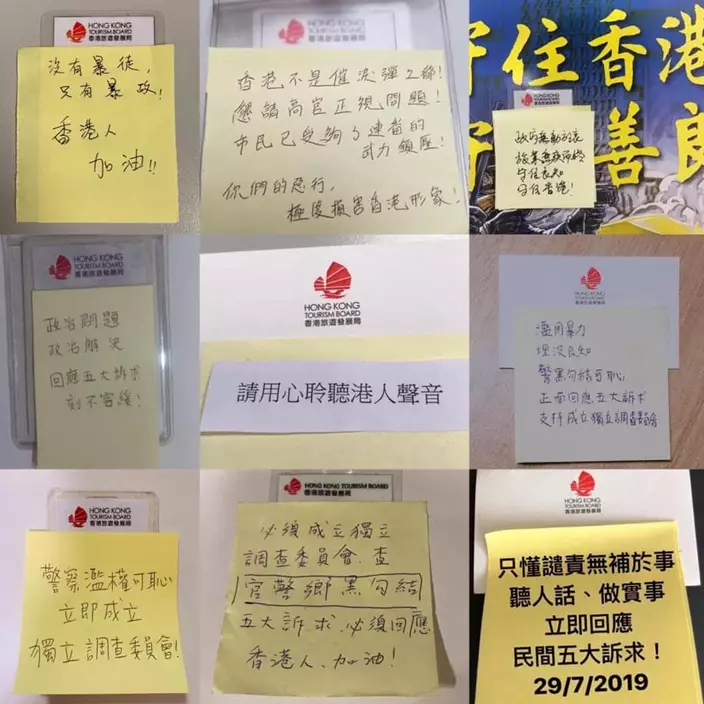 HONG KONG
TOURISM BOARD
香港旅遊發展局
沒有暴徒,
只有暴政!
香港人
加油!!
香港不是催淚彈之都!
懇請高官正視問題!
市民已受夠了連番的
武力鎮壓!
你們的惡行,
極度損害香港形象!
守住香港
守 善良
HONG KONG
TOURISM BOARD
守住良知
守住香港!
HONG KONG
TOURISM BOARD
香港旅遊發展局
政治問題
政治解決
回應五大訴求
刻不容緩!
HONG KONG
TOURISM BOARD
香港旅遊發展局
請用心聆聽港人聲音
HONG KONG
TOURISM BOARD
香港旅遊發展局
濫用暴力
埋沒良知
警黑勾結可恥
正面回應五大訴求
支持成立獨立調查委員會
HONG KONG
TOURISM BOARD
香港旅遊發展局
警察濫權可恥
立即成立
獨立調查委員會!
HONG KONG TOURISM BOARD
香港旅遊發展局
必須成立獨立
調查委員會.查
官警鄉黑勾結
五大訴求.必須回應
香港人.加油!
HONG KONG
TOURISM BOARD
香港旅遊發展局
只懂譴責無補於事
聽人話、做實事
立即回應
民間五大訴求!
29/7/2019